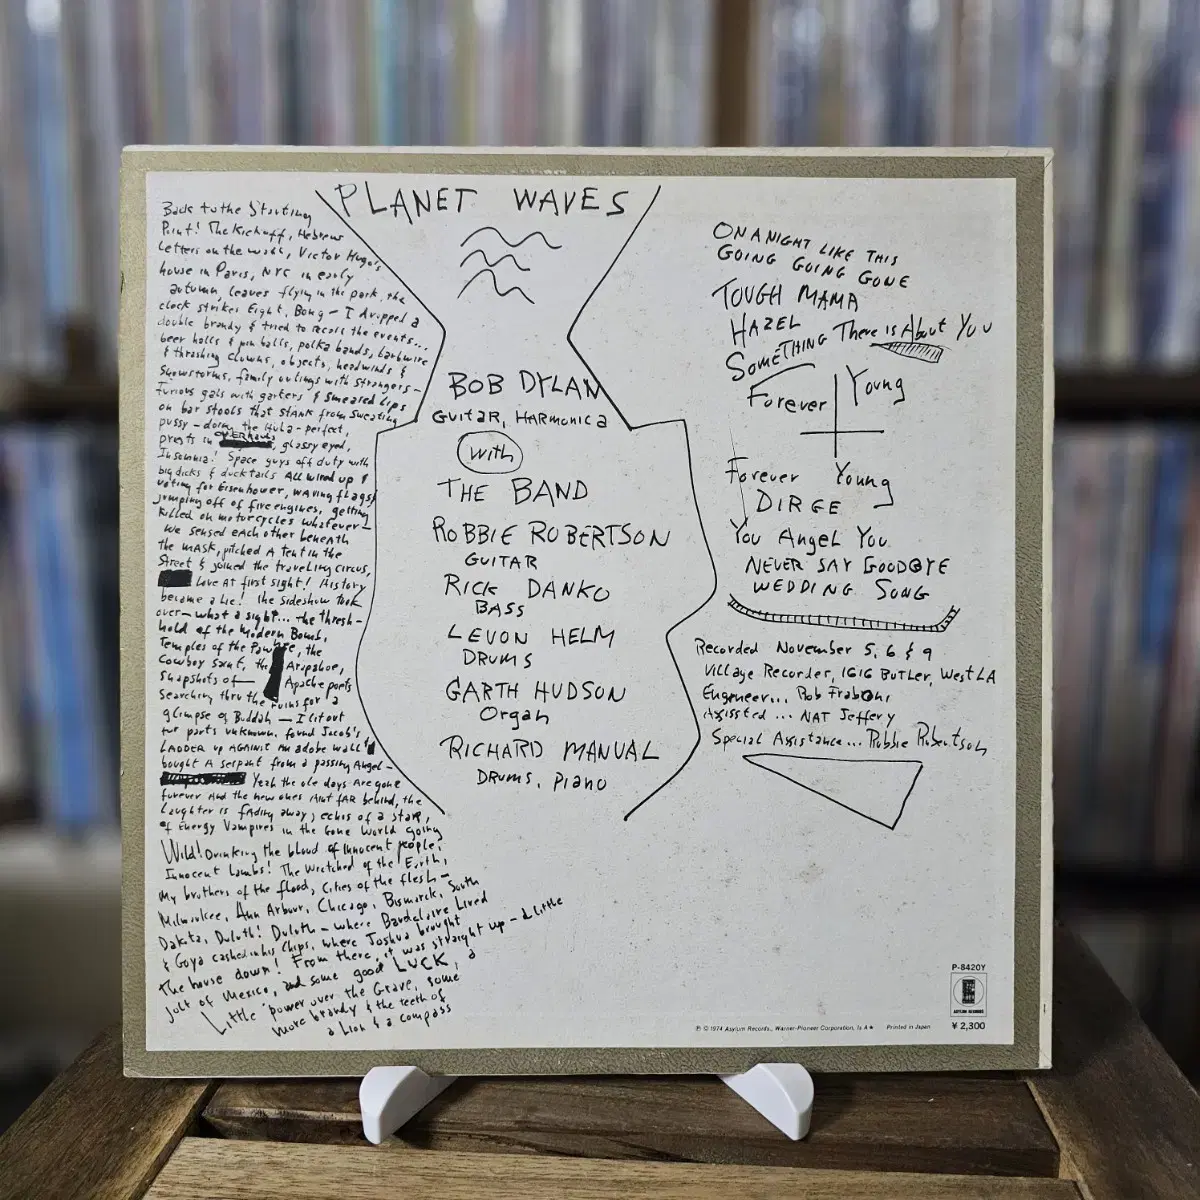 PLANET WAVES
Back to the Starting
Point! The Kickoff, Hebrew
Letters on the wall, Victor Hugo's
house in Paris, NYC in early
autumn, leaves flying in the park, the
clock strikes Eight, Bong - I dropped a
double brandy & tried to recall the events...
beer halls & pin balls, polka bands, barbwire
& thrashing clowns, objects, headwinds &
Snowstorms, family outings with strangers -
Furious gals with garters & smeared Lips
on bar stools that stank from sweating
pussy - doing the Hula - perfect,
prests in OVERhauls, glassy eyed,
Insomnia! Space guys off duty with
big dicks & ducktails All wired up &
voting for Eisenhower, waving flags &
jumping off of fire engines, getting
killed on motorcycles whatever -
We sensed each other beneath
the mask, pitched a tent in the
Street & joined the traveling circus,
Love at first sight! History
became a Lie! the sideshow took
over - what a sight... the thresh-
hold of the Modern Bomb,
Temples of the Pawnee, the
Cowboy Saint, the Arapahoe,
Snapshots of Apache poets
Searching thru the ruins for a
glimpse of Buddah - I lit out
for parts unknown, found Jacob's
LADDER up AGAINST an adobe wall &
bought a serpent from a passing Angel -
Yeah the ole days Are gone
forever And the new ones Aint fAR behind, the
Laughter is fAding away, echos of a staR,
of Energy Vampires in the Gone World going
Wild! Drinking the blood of innocent people,
Innocent Lambs! The Wretched of the Earth,
My brothers of the flood, Cities of the flesh -
Milwaukee, Ann Arbour, Chicago, Bismarck, South
Dakota, Duluth! Duluth - where Baudelaire Lived
& Goya cashed in his Chips, where Joshua brought
The house down! From there, it was straight up - a little
jolt of Mexico, and some good LUCK, a
Little power over the Grave, some
more brandy & the teeth of
a Lion & a compass
BOB DYLAN
GUITAR, HARMONICA
with
THE BAND
ROBBIE ROBERTSON
GUITAR
RICK DANKO
BASS
LEVON HELM
DRUMS
GARTH HUDSON
Organ
RICHARD MANUAL
DRUMS, PIANO
ON A NIGHT LIKE THIS
GOING GOING GONE
TOUGH MAMA
HAZEL
SOMETHING There is About You
Forever Young
Forever Young
DIRGE
You Angel You
NEVER SAY GOODBYE
WEDDING SONG
Recorded November 5, 6 & 9
Village Recorder, 1616 BUTLER, West LA
Engeneer... Rob Fraboni
Assissted... NAT Jeffery
Special Assistance... Robbie Robertson
P-8420Y
ASYLUM RECORDS
¥ 2,300
Ⓟ © 1974 Asylum Records, Warner-Pioneer Corporation, Is A★ Printed in Japan